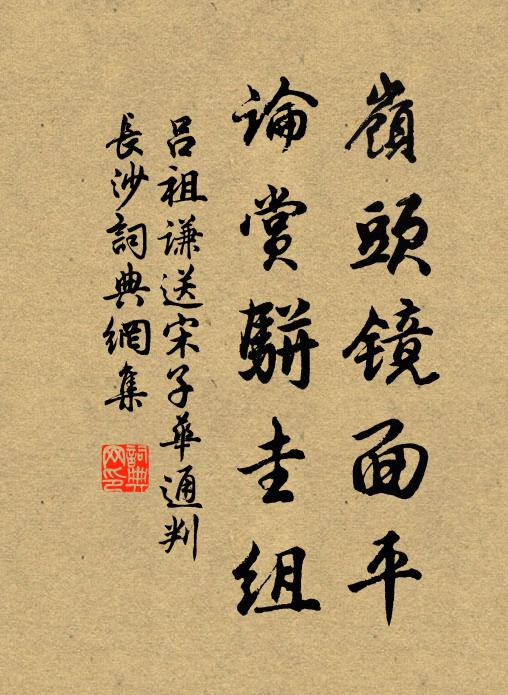 嶺頭镜面平
論赏駢圭组
吕祖谦送宋子華通判
長沙詞典網集
詞典网印